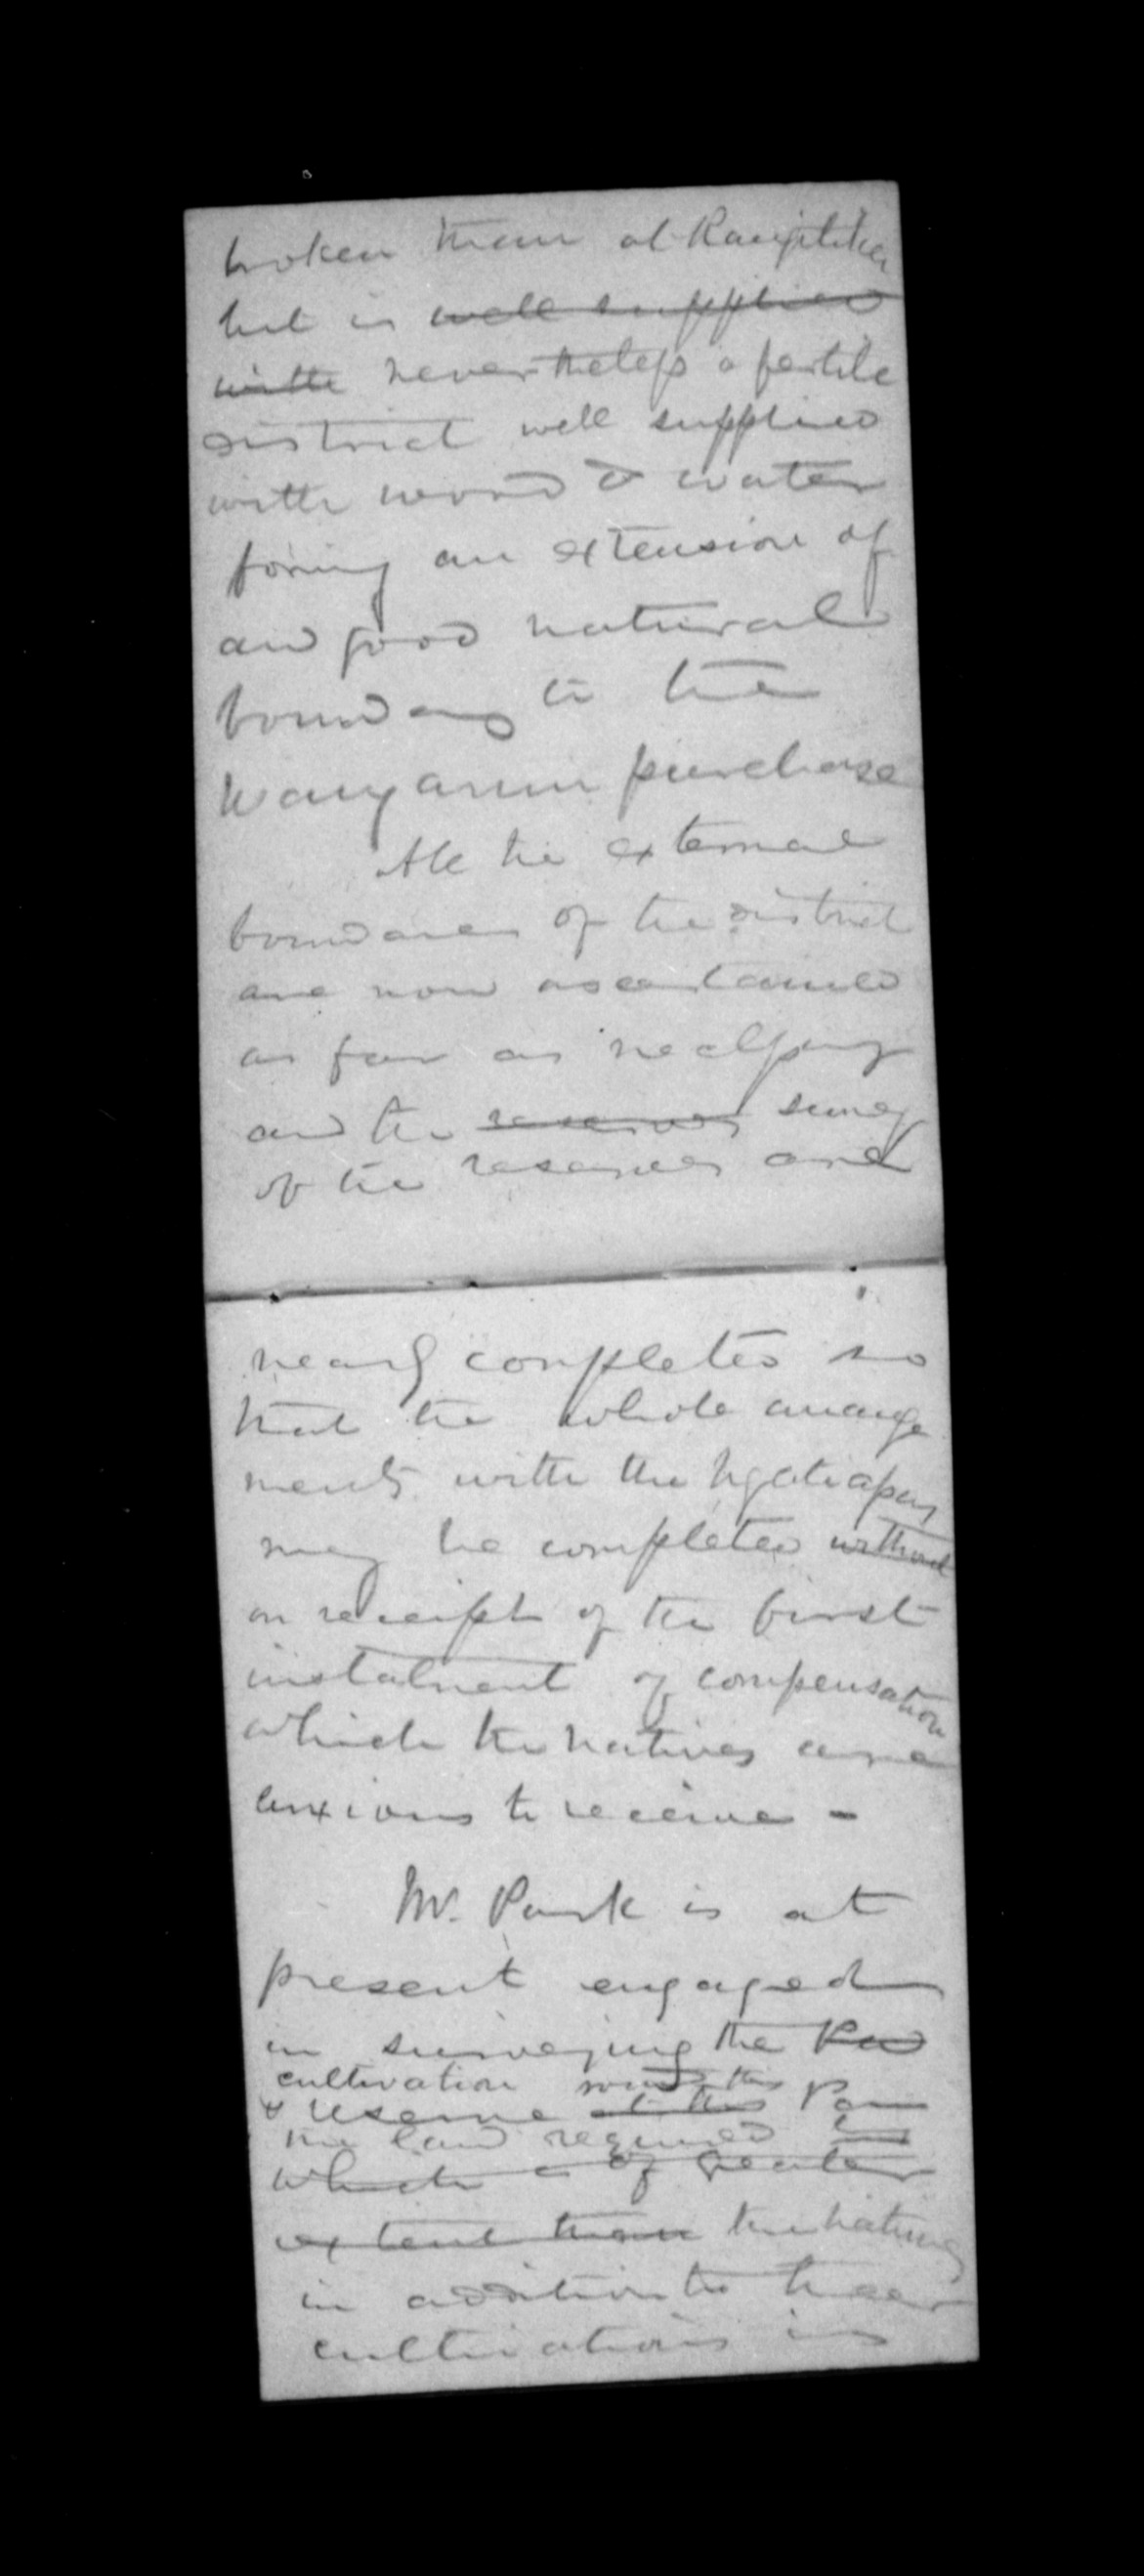 broken than at Rangitikei
but is well supplied
with nevertheless a fertile
district well supplied
with wood & water
foring an extension of
and good natural
boundary to the
Wanganui purchase
All the external
boundaries of the district
are now ascertained
as far as necessary
and the reserves survey
of the reserves are
nearly completed so
that the whole arrange
ments with the Ngatiapas
may be completed without
on receipt of the first
instalment of compensation
which the natives are
anxious to receive -
Mr. Park is at
present engaged
in surveying the
cultivation round the
& reserve at the Pa
the land required
which is of greater
extent than the natives
in addition to their
cultivations is